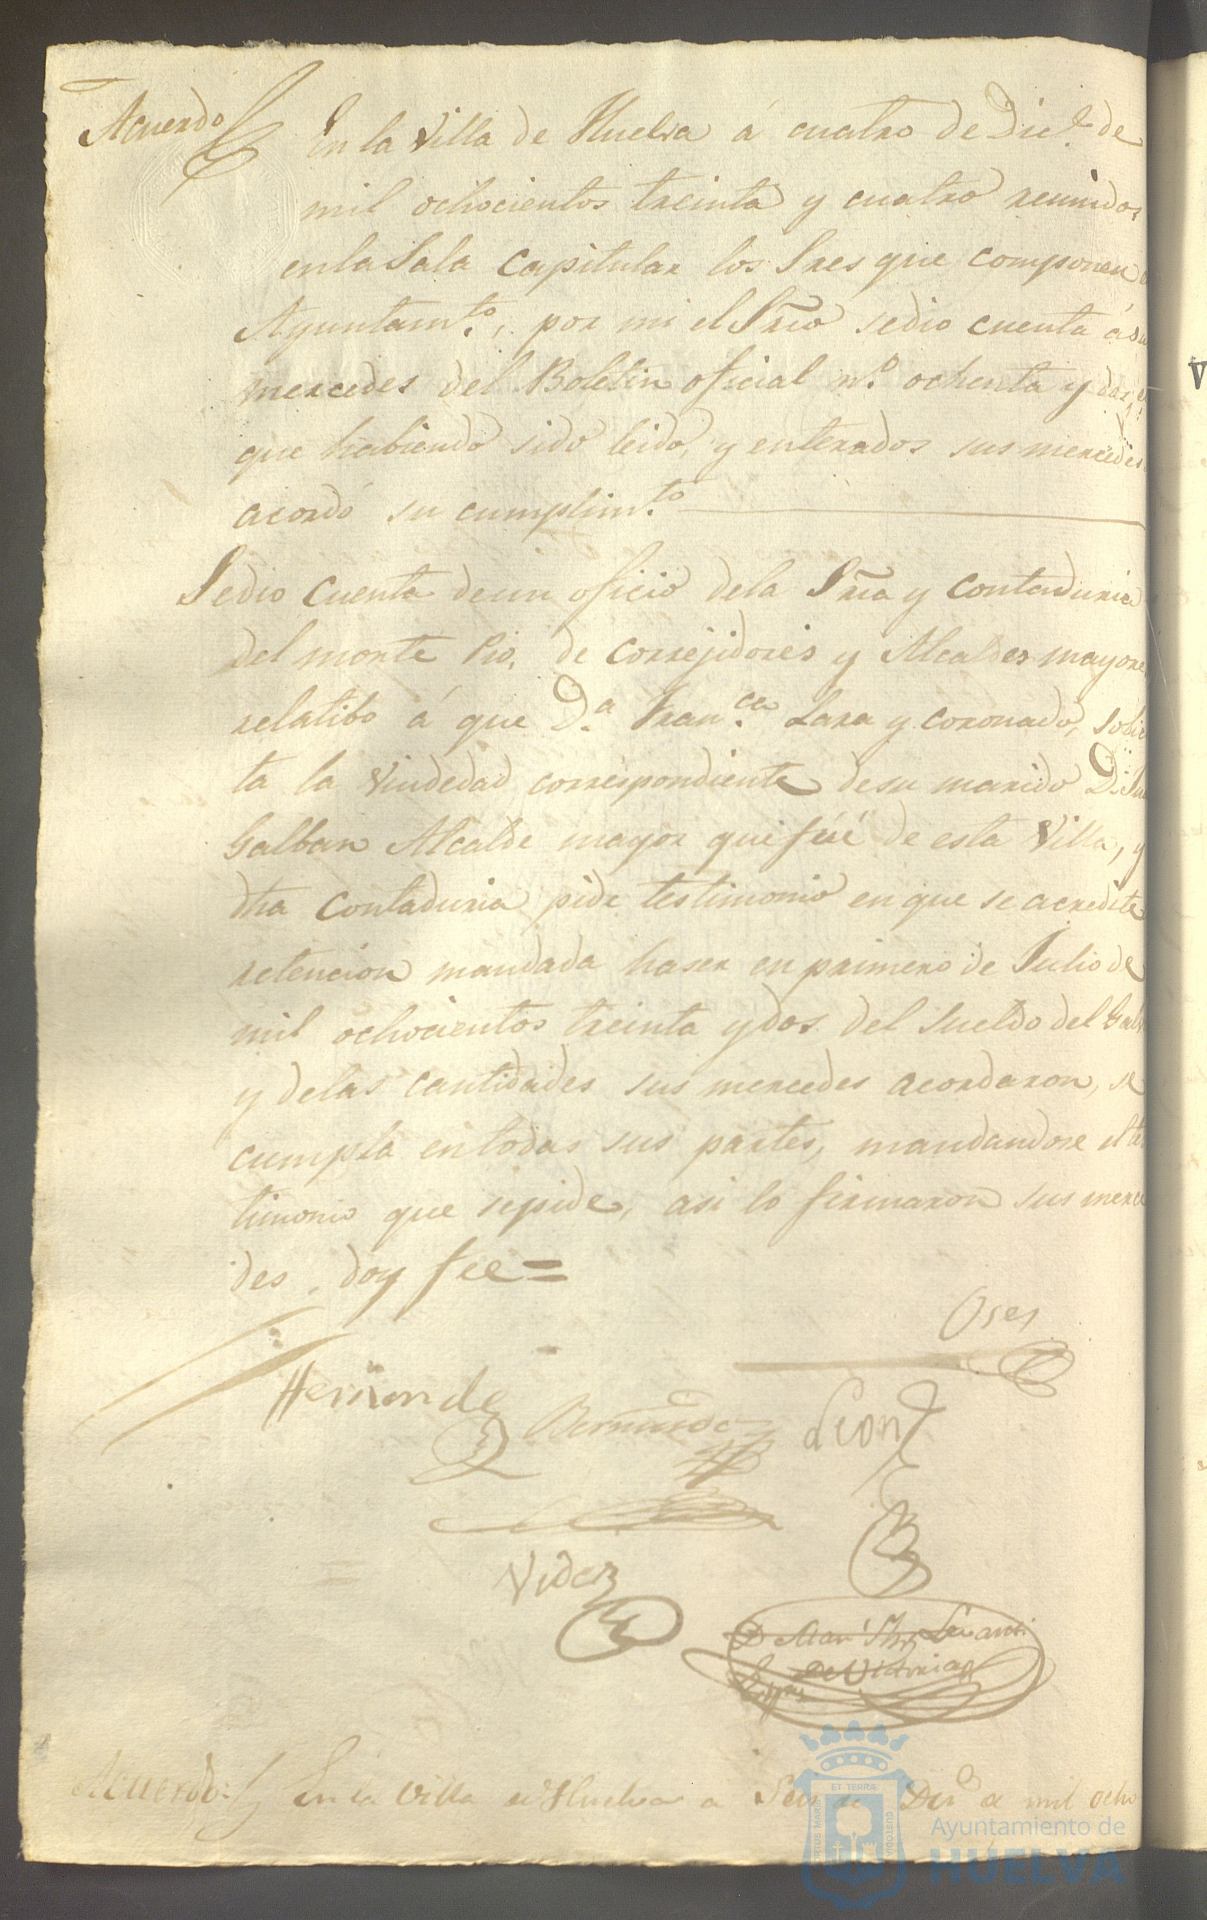 Acuerdo En la Villa de Huelva á cuatro de Dic.e de
mil ochocientos treinta y cuatro reunidos
en la Sala Capitular los Sres que componen
Ayuntam.to, por mi el Srio se dio cuenta á su
mercedes del Boletin oficial n.o ochenta y dos
que habiendo sido leido, y enterados sus mercedes
acordó su cumplim.to
Se dio cuenta de un oficio de la Sria y Contaduria
del monte Pio, de Correjidores y Alcaldes mayore
relatibo á que D.a Fran.ca Lara y Coronado, solic
ta la Viudedad correspondiente de su marido D.
Galban Alcalde mayor que fué de esta Villa, y
dha Contaduria pide testimonio en que se acredite
retencion mandada haser en primero de Julio de
mil ochocientos treinta y dos del Sueldo del Galb
y de las cantidades sus mercedes acordaron, se
cumpla en todas sus partes, mandandose el te
timonio que se pide, asi lo firmaron sus merce
des, doy fee =
Oses
Hernande
Bermudez
Leon
Videz
De Victoria
Acuerdo: En la Villa de Huelva a Seis de Dic.e de mil ocho
ET TERRÆ
PORTUS MARIS
CUSTODIA
Ayuntamiento de
HUELVA
V